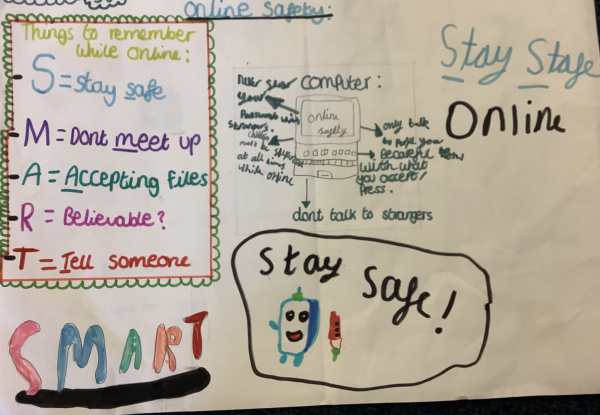 online safety:
Things to remember
while online:
S = stay safe
M = Dont meet up
A = Accepting files
R = Believable?
T = Tell someone
SMART
computer:
your
Password with
strangers.
at all times
while online
online
safety
only talk
to you
Becareful
with what
you accept/
Press.
dont talk to strangers
Stay Stafe
Online
Stay
Safe!